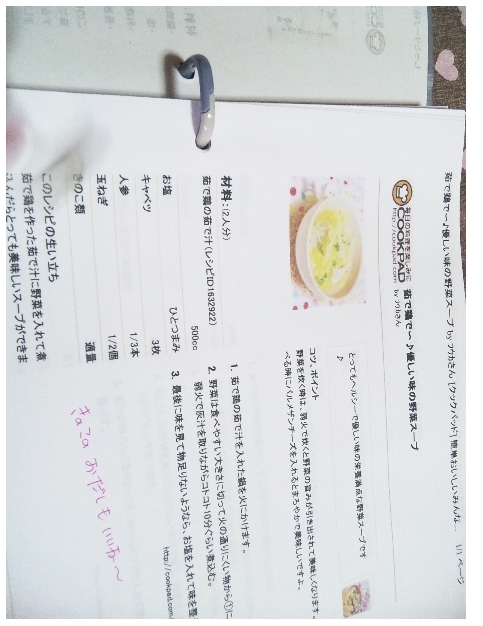 茹で鶏で～♪優しい味の野菜スープ by フウカさん [クックパッド] 簡単おいしいみんな... 1/1 ページ
毎日の料理を楽しみに
COOKPAD
http://cookpad.com
茹で鶏で～♪優しい味の野菜スープ
by フウカさん
とってもヘルシーで優しい味の栄養満点な野菜スープです
♪
コツ、ポイント
野菜を炊く時は、弱火で炊くと野菜の旨みが引き出されて美味しくなります。
べる時にパルメザンチーズを入れるとまろやかで美味しいですよ。
材料：(2人分)
茹で鶏の茹で汁(レシピID1632922)
500cc
お塩 ひとつまみ
キャベツ 3枚
人参 1/3本
玉ねぎ 1/2個
きのこ類 適量
このレシピの生い立ち
茹で鶏を作った茹で汁に野菜を入れて煮
込んだらとっても美味しいスープができま
1. 茹で鶏の茹で汁を入れた鍋を火にかけます。
2. 野菜は食べやすい大きさに切って火の通りにくい物から①に
弱火で灰汁を取りながらコトコト10分ぐらい煮込む。
3. 最後に味を見て物足りないようなら、お塩を入れて味を整
http://cookpad.com/